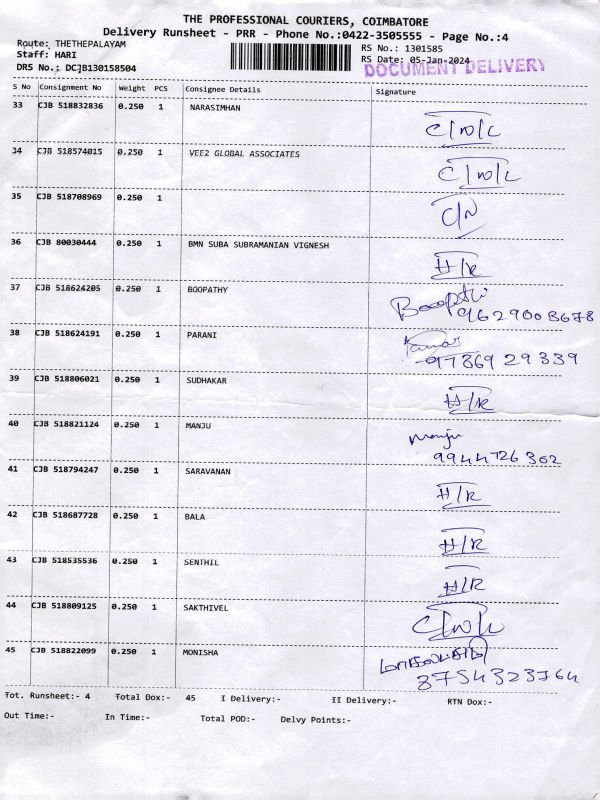 THE PROFESSIONAL COURIERS, COIMBATORE
Delivery Runsheet - PRR - Phone No.:0422-3505555 - Page No.:4
Route: THETHEPALAYAM RS No.: 1301585
Staff: HARI RS Date: 05-Jan-2024
DRS No.: DCJB130158504 DOCUMENT DELIVERY
S No Consignment No Weight PCS Consignee Details Signature
33 CJB 518832836 0.250 1 NARASIMHAN
C/W/L
34 CJB 518574015 0.250 1 VEE2 GLOBAL ASSOCIATES
C/W/L
35 CJB 518708969 0.250 1
C/N
36 CJB 80030444 0.250 1 BMN SUBA SUBRAMANIAN VIGNESH
H/R
37 CJB 518624205 0.250 1 BOOPATHY
Boopathi
9629008678
38 CJB 518624191 0.250 1 PARANI
97869 29339
39 CJB 518806021 0.250 1 SUDHAKAR
H/R
40 CJB 518821124 0.250 1 MANJU
Manju
9944726302
41 CJB 518794247 0.250 1 SARAVANAN
H/R
42 CJB 518687728 0.250 1 BALA
H/R
43 CJB 518535536 0.250 1 SENTHIL
H/R
44 CJB 518809125 0.250 1 SAKTHIVEL
C/W/L
45 CJB 518822099 0.250 1 MONISHA
8754323764
Tot. Runsheet:- 4 Total Dox:- 45 I Delivery:- II Delivery:- RTN Dox:-
Out Time:- In Time:- Total POD:- Delvy Points:-